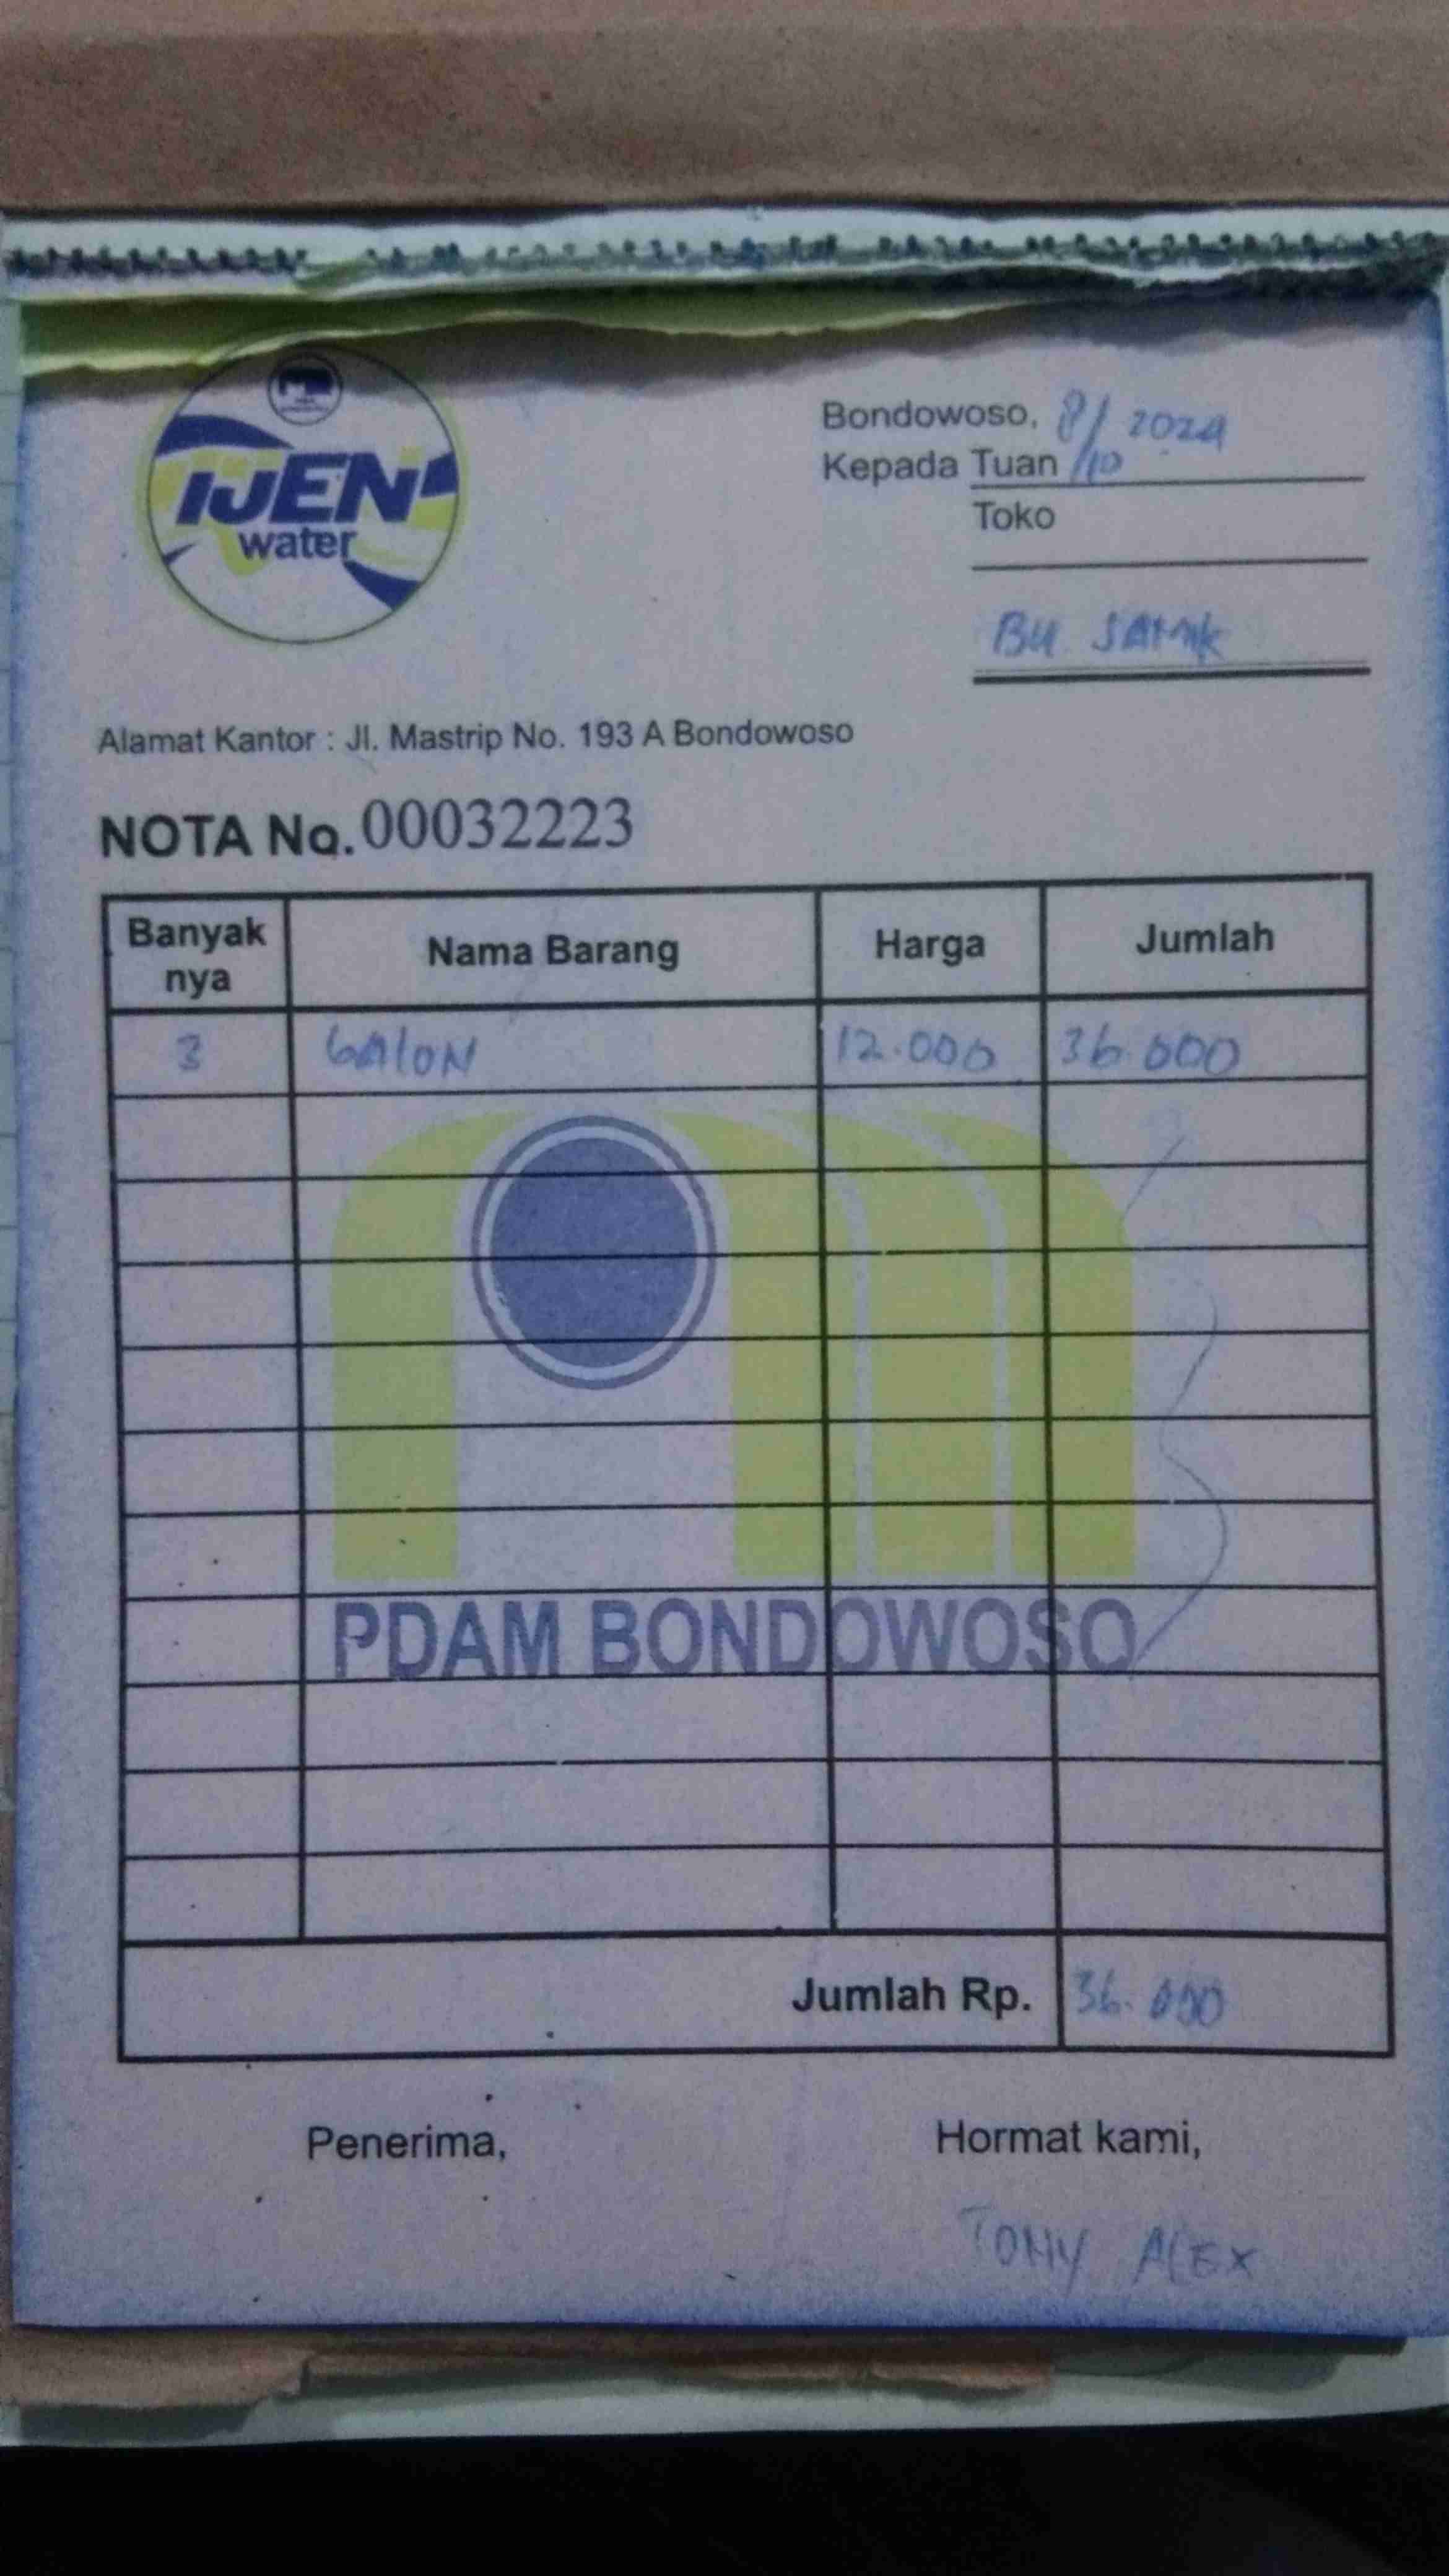 IJEN
water
Bondowoso, 8/10 2024
Kepada Tuan
Toko
BU
Alamat Kantor : Jl. Mastrip No. 193 A Bondowoso
NOTA No. 00032223
Banyak nya Nama Barang Harga Jumlah
3 GALON 12.000 36.000
PDAM BONDOWOSO
Jumlah Rp. 36.000
Penerima, Hormat kami,
TONY ALEX